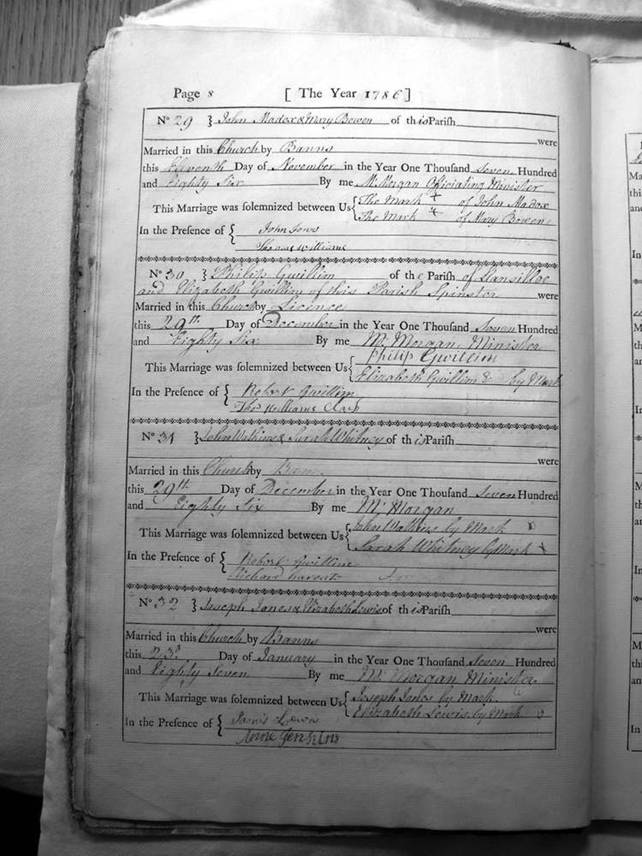 Page 8 [ The Year 1786 ]
No 29 } John Madox & Mary Bowen of this Parish
were
Married in this Church by Banns
this Eleventh Day of November in the Year One Thousand Seven Hundred
and Eighty Six By me M. Morgan Officiating Minister
This Marriage was solemnized between Us { The Mark + of John Madox
The Mark + of Mary Bowen
In the Presence of { John
Thomas Williams
No 30 } Philip Gwillim of the Parish of Lansilloe
and Elizabeth Gwillim of this Parish Spinster were
Married in this Church by Licence
this 29th Day of December in the Year One Thousand Seven Hundred
and Eighty Six By me M. Morgan Minister
This Marriage was solemnized between Us { Philip Gwillim
Elizabeth Gwillim by Mark
In the Presence of { Robert Gwillim
Tho Williams
No 31 } John Watkins & Sarah Whitney of this Parish
were
Married in this Church by Banns
this 29th Day of December in the Year One Thousand Seven Hundred
and Eighty Six By me M. Morgan
This Marriage was solemnized between Us { John Watkins by Mark
Sarah Whitney by Mark +
In the Presence of { Robert Gwillim
Richard
No 32 } Joseph Jones & Elizabeth Lewis of this Parish
were
Married in this Church by Banns
this 23d Day of January in the Year One Thousand Seven Hundred
and Eighty Seven By me M. Morgan Minister
This Marriage was solemnized between Us { Joseph Jones by Mark
Elizabeth Lewis by Mark o
In the Presence of {
Anne Jenkins